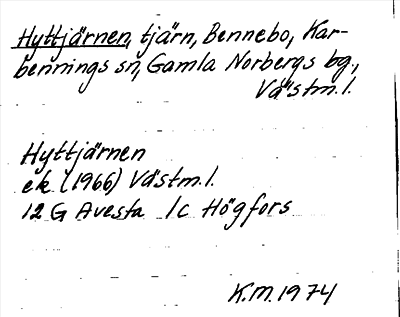 Hyttjärnen, tjärn, Bennebo, Kar-
bennings sn, Gamla Norbergs bg.,
Västm.l.
Hyttjärnen
ek (1966) Västm.l.
12 G Avesta 1c Högfors
K.M. 1974